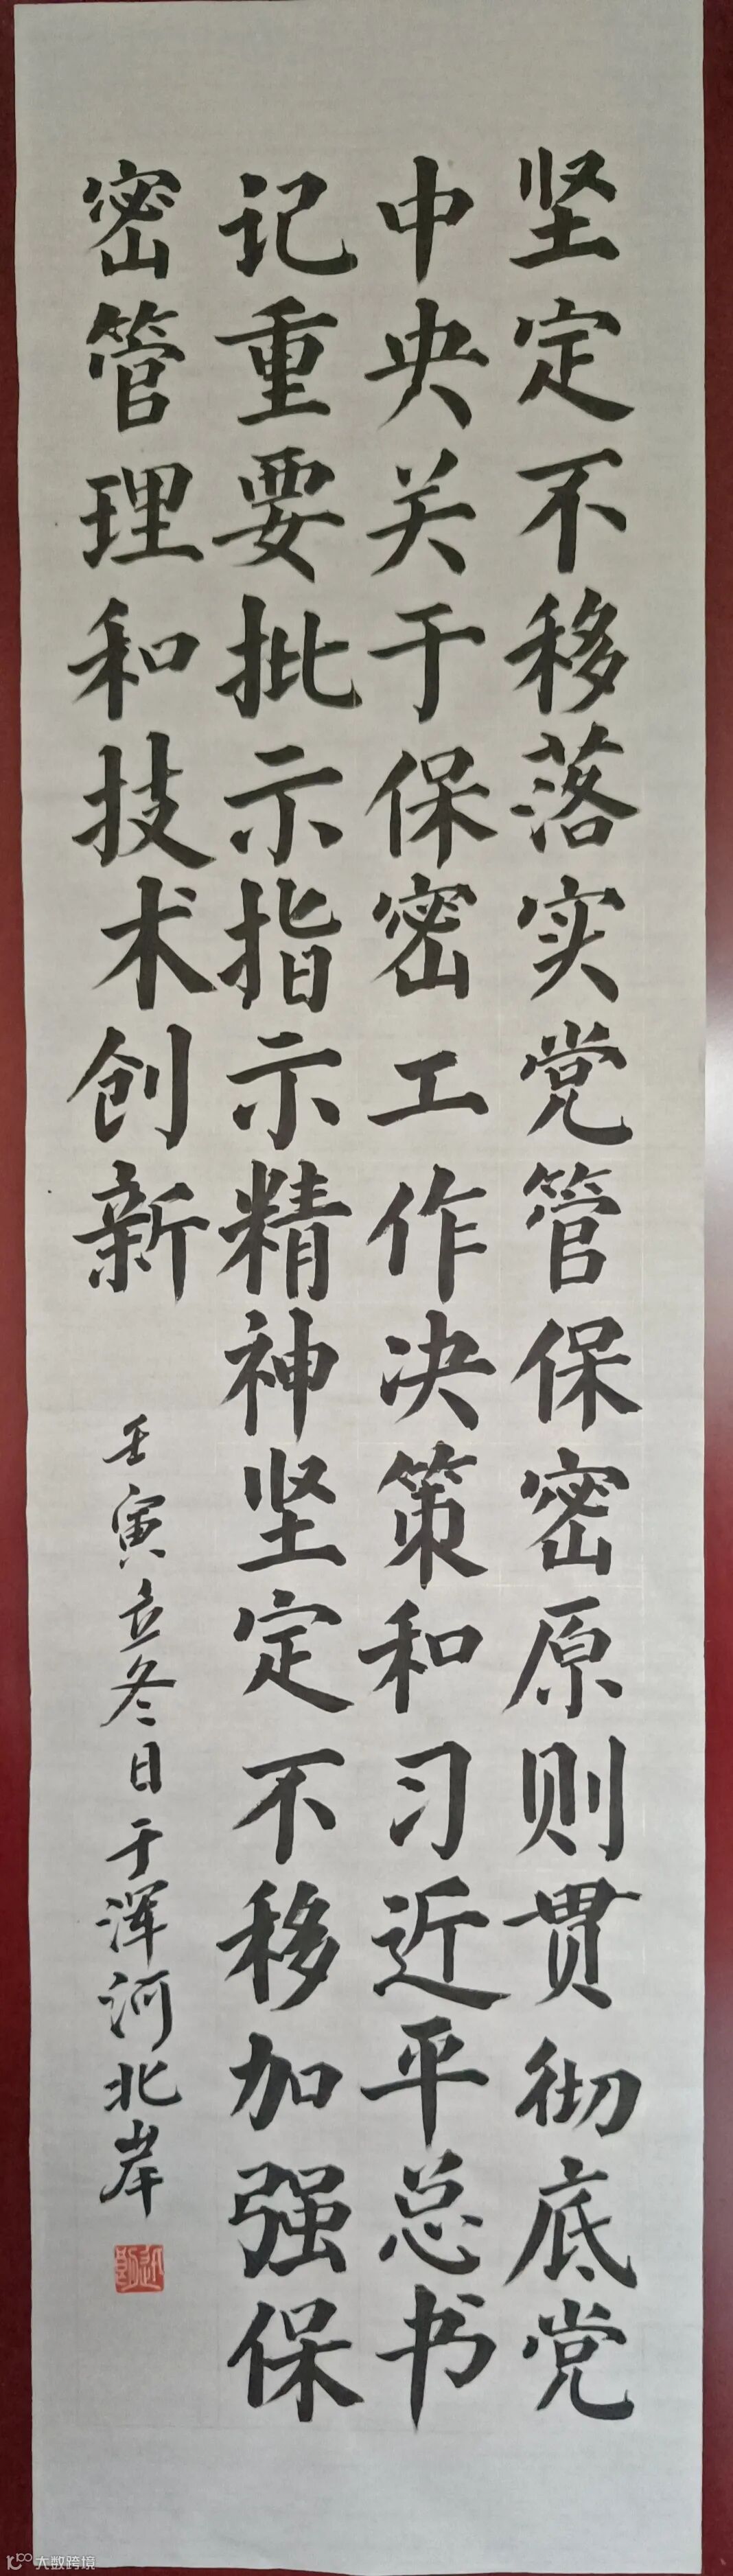 坚定不移落实党管保密原则贯彻底党
中央关于保密工作决策和习近平总书
记重要批示指示精神坚定不移加强保
密管理和技术创新
壬寅立冬日于浑河北岸
大数跨境